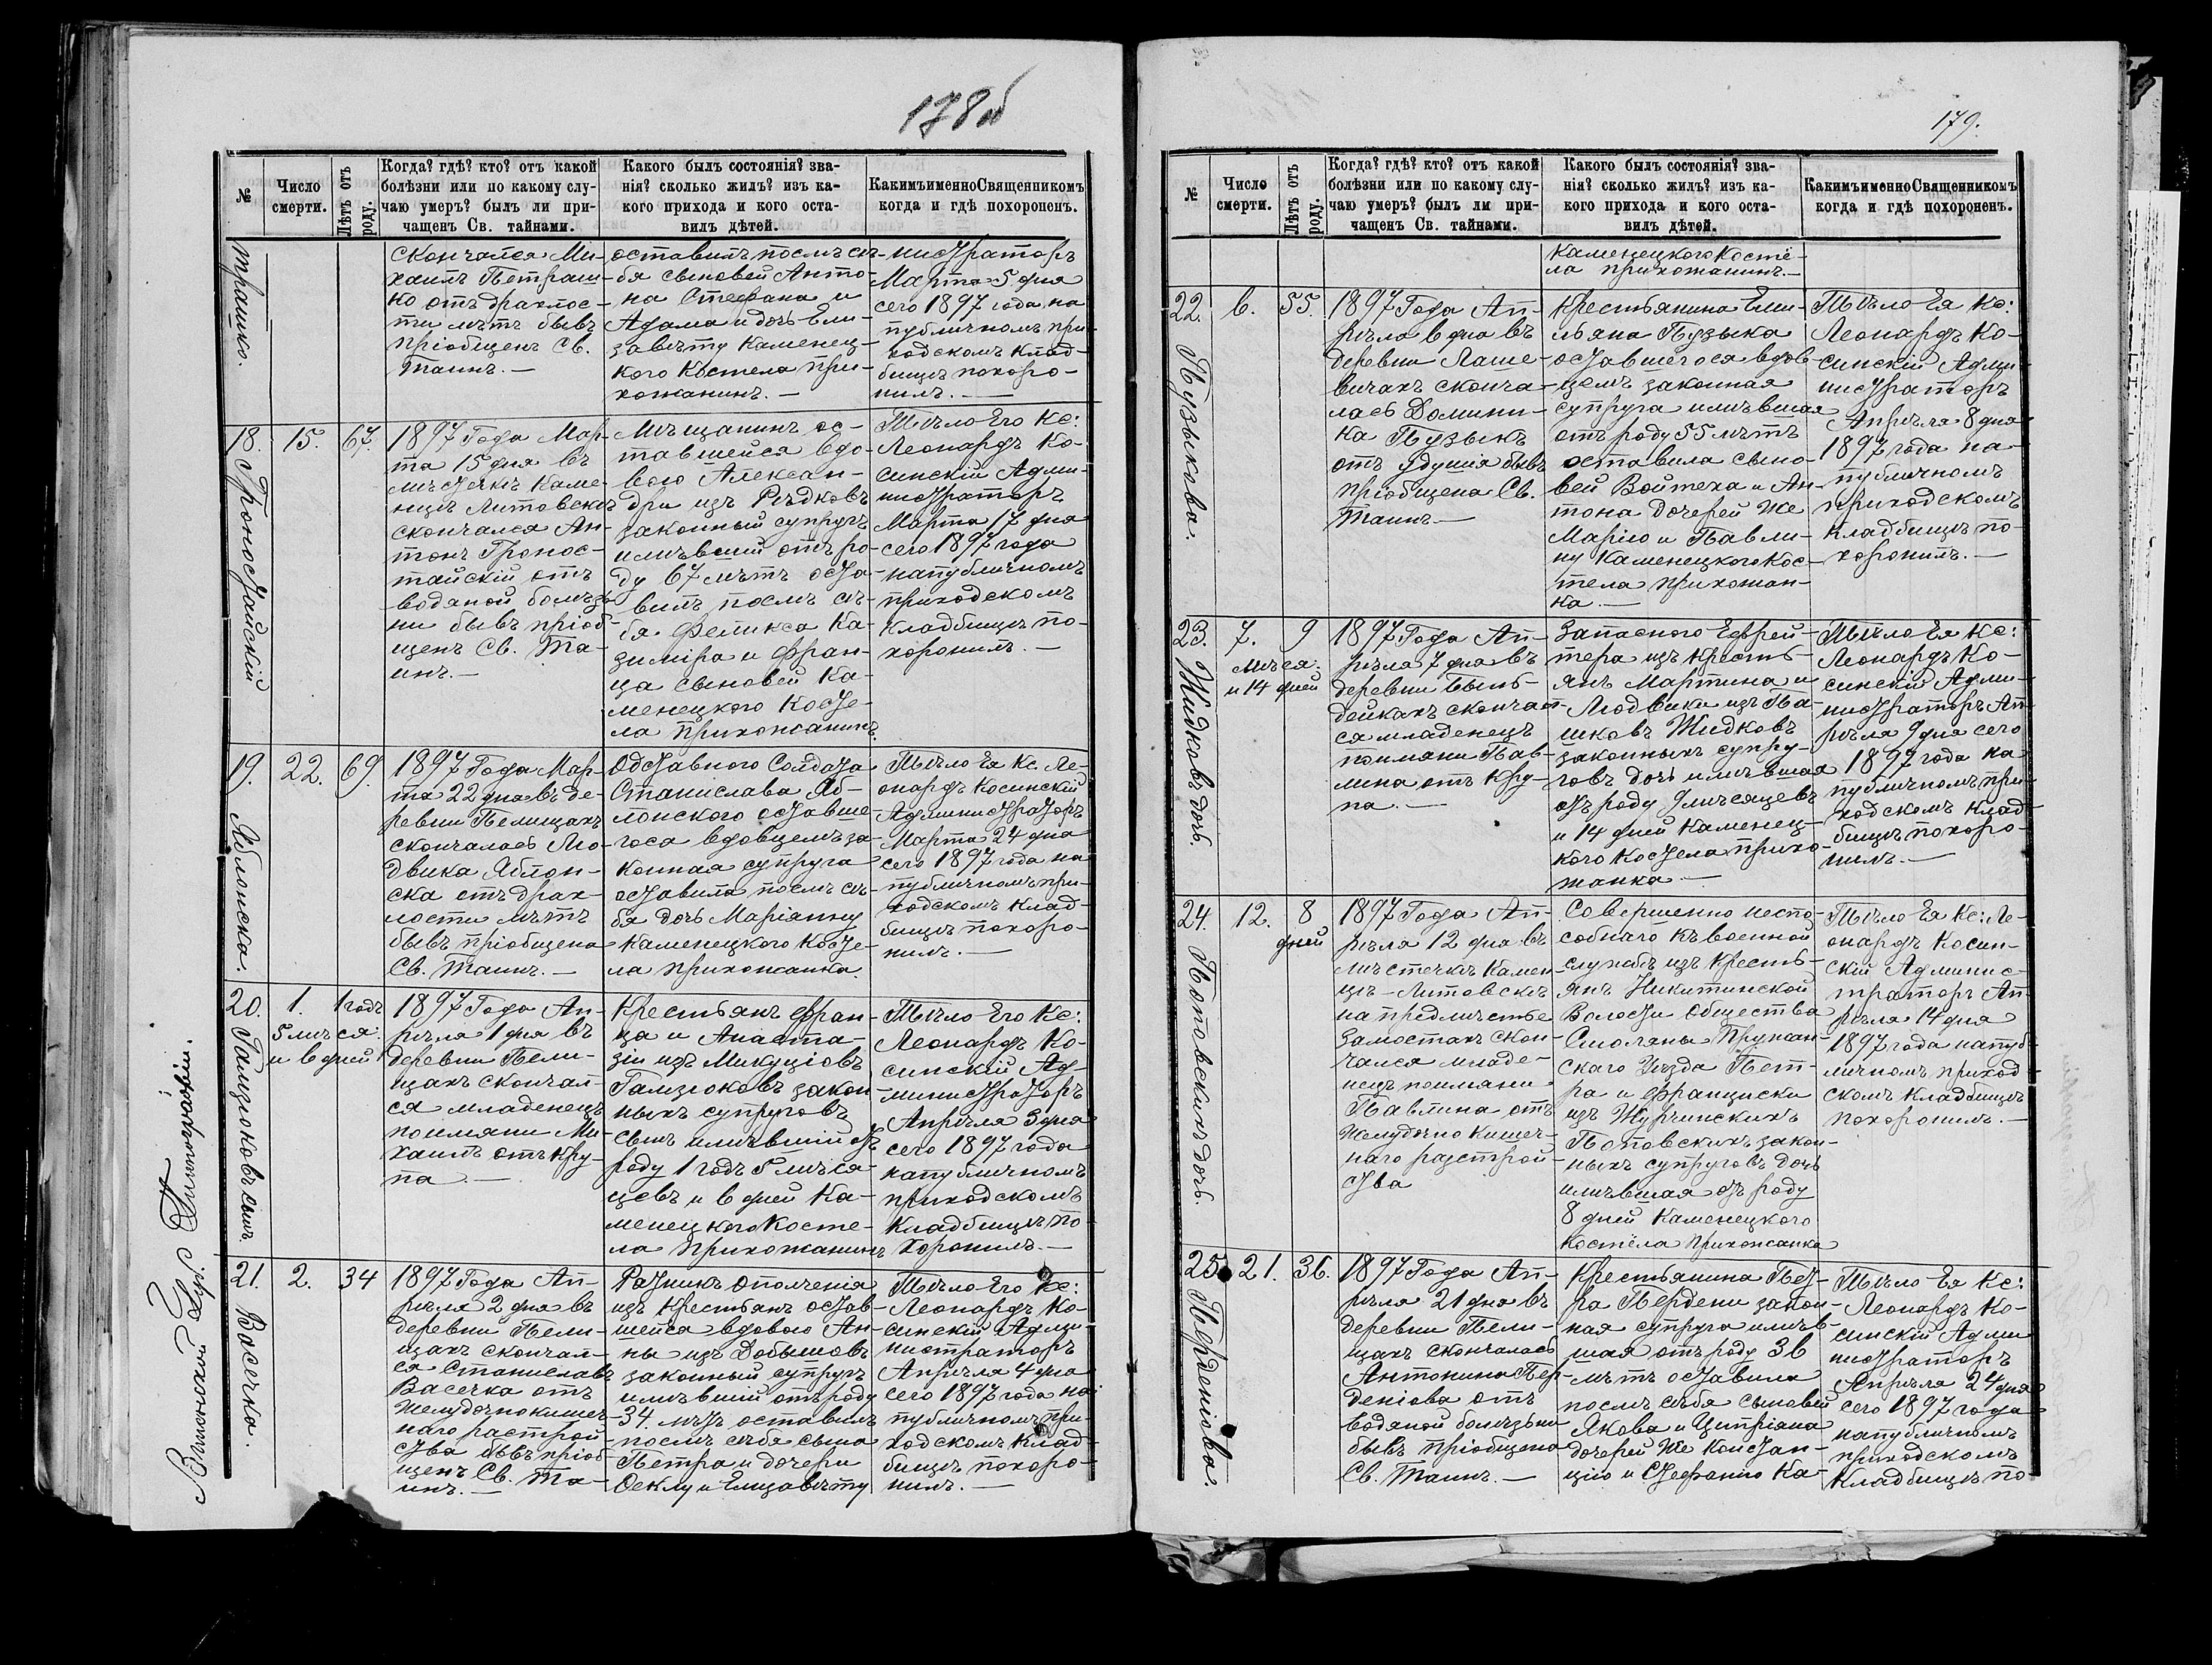 178б
№
Число смерти.
Лѣтъ отъ роду.
Когда? гдѣ? кто? отъ какой
болѣзни или по какому слу-
чаю умеръ? былъ ли при-
чащенъ Св. тайнами.
Какого былъ состоянія? зва-
нія? сколько жилъ? изъ ка-
кого прихода и кого оста-
вилъ дѣтей.
Какимъ именно Священникомъ
когда и гдѣ похороненъ.
трашко.
скончался Ми-
хаилъ Петраш-
ко отъ драхлос-
ти лѣтъ бывъ
пріобщенъ Св.
Таинъ.—
оставилъ послѣ се-
бя сыновей Анто-
на Стефана и
Адама и дочь Ели-
завѣту Каменец-
кого Костела при-
хожанинъ.—
нистраторъ
Марта 5 дня
сего 1897 года на
публичномъ при-
ходскомъ клад-
бищѣ похоро-
нилъ.—
18.
Гроностайскій
15.
67.
1897 Года Мар-
та 15 дня въ
мѣстечкѣ Каме-
нцѣ Литовскѣ
скончался Ан-
тонъ Гронос-
тайскій отъ
водяной болѣз-
ни бывъ пріоб-
щенъ Св. Та-
инъ.—
Мѣщанинъ ос-
тавшейся вдо-
вою Алексан-
дри изъ Рѣдковъ
законный супругъ
имѣвшій отъ ро-
ду 67 лѣтъ оста-
вилъ послѣ се-
бя Феликса Ка-
зиміра и Фран-
ца сыновей Ка-
менецкого Косте-
ла прихожанинъ.
Тѣло Его Кс:
Леонардъ Ко-
синскій Адми-
нистраторъ
Марта 17 дня
сего 1897 года
на публичномъ
приходскомъ
Кладбищѣ по-
хоронилъ.—
19.
Яблонска.
22.
69.
1897 Года Мар-
та 22 дня въ де-
ревни Пелищахъ
скончалась Лю-
двика Яблон-
ска отъ драх-
лости лѣтъ
бывъ пріобщена
Св. Таинъ.—
Одставного Солдата
Станислава Яб-
лонского оставше-
гося вдовцемъ за-
конная супруга
оставила послѣ се-
бя дочь Маріанну
Каменецкого Косте-
ла прихожанка.
Тѣло Ея Кс. Ле-
онардъ Косинскій
Администраторъ
Марта 24 дня
сего 1897 года на
публичномъ при-
ходскомъ клад-
бищѣ похоро-
нилъ.—
20.
Гамзюковъ сынъ.
1.
1 годъ
5 мѣся:
и 6 дней
1897 Года Ап-
рѣля 1 дня въ
деревни Пели-
щахъ скончал-
ся младенецъ
поимяни Ми-
хаилъ отъ кру-
па.—
Крестьянъ Фран-
ца и Анаста-
зіи изъ Микуціовъ
Гамзюковъ закон-
ныхъ супруговъ
сынъ имѣвшій отъ
роду 1 годъ 5 мѣся-
цевъ и 6 дней Ка-
менецкого Косте-
ла прихожанинъ
Тѣло Его Кс:
Леонардъ Ко-
синскій Ад-
министраторъ
Апрѣля 3 дня
сего 1897 года
на публичномъ
приходскомъ
Кладбищѣ по-
хоронилъ.—
21.
Васечка.
2.
34
1897 Года Ап-
рѣля 2 дня въ
деревни Пели-
щахъ скончал-
ся Станиславъ
Васечка отъ
Желудочнокишеч-
наго растрой-
ства бывъ пріоб-
щенъ Св. Та-
инъ.—
Ратникъ Ополченія
изъ крестьянъ остав-
шейся вдовою Ан-
ны изъ Добышовъ
законный супругъ
имѣвшій отъ роду
34 лѣтъ оставилъ
послѣ себя сына
Петра и дочери
Ѳеклу и Елизавѣту
Тѣло Его Кс:
Леонардъ Ко-
синскій Адми-
нистраторъ
Апрѣля 4 дня
сего 1897 года на
публичномъ при-
ходскомъ клад-
бищѣ похоро-
нилъ.—
Виленской Гу. Типографіи.
179.
№
Число смерти.
Лѣтъ отъ роду.
Когда? гдѣ? кто? отъ какой
болѣзни или по какому слу-
чаю умеръ? былъ ли при-
чащенъ Св. тайнами.
Какого былъ состоянія? зва-
нія? сколько жилъ? изъ ка-
кого прихода и кого оста-
вилъ дѣтей.
Какимъ именно Священникомъ
когда и гдѣ похороненъ.
Каменецкого Костё-
ла прихожанинъ.—
22.
Пузыкова.
6.
55.
1897 Года Ап-
рѣля 6 дня въ
деревни Лаше-
вичахъ сконча-
лась Домини-
ка Пузыкъ
отъ удушія бывъ
пріобщена Св.
Таинъ—
Крестьянина Еми-
льяна Пузыка
оставшегося вдов-
цемъ законная
супруга имѣвшая
отъ роду 55 лѣтъ
оставила сыно-
вей Войтеха и Ан-
тона дочерей же
Марію и Павли-
ну Каменецкого Кос-
тела прихожан-
ка.—
Тѣло Ея Кс:
Леонардъ Ко-
синскій Адми-
нистраторъ
Апрѣля 8 дня
1897 года на
публичномъ
приходскомъ
Кладбищѣ по-
хоронилъ.—
23.
Жидковъ дочь.
7.
9
мѣся:
и 14 дней
1897 Года Ап-
рѣля 7 дня въ
деревни Бынь-
дейкахъ скончал-
ся младенецъ
поимяни Пав-
лина отъ Кру-
па.—
Запасного Ефрей-
тера изъ кресть-
янъ Мартина и
Людвики изъ Па-
шковъ Жидковъ
законныхъ супру-
говъ дочь имѣвшая
отъ роду 9 мѣсяцевъ
и 14 дней Каменец-
кого Костела прихо-
жанка—
Тѣло Ея Кс:
Леонардъ Ко-
синскій Адми-
нистраторъ Ап-
рѣля 9 дня сего
1897 года на
публичномъ при-
ходскомъ клад-
бищѣ похоро-
нилъ.—
24.
Поповскихъ дочь.
12.
8
дней
1897 Года Ап-
рѣля 12 дня въ
мѣстечкѣ Камен-
цѣ-Литовскѣ
на предмѣстье
Замостахъ скон-
чался младе-
нецъ поимяни
Павлина отъ
Желудочно Кишеч-
наго разстрой-
ства
Совершенно неспо-
собнаго къ военной
службѣ изъ кресть-
янъ Никитинской
Волости Общества
Смоляны Пружан-
скаго Уѣзда Пет-
ра и Франциски
изъ Журчинскихъ
Поповскихъ закон-
ныхъ супруговъ дочь
имѣвшая отъ роду
8 дней Каменецкого
Костёла прихожанка
Тѣло Ея Кс: Ле-
онардъ Косин-
скій Админис-
траторъ Ап-
рѣля 14 дня
1897 года на пуб-
личномъ приход-
скомъ кладбищѣ
похоронилъ.—
25.
Перденіова.
21.
36.
1897 Года Ап-
рѣля 21 дня въ
деревни Пели-
щахъ скончалась
Антонина Пер-
деніова отъ
водяной болѣзни
бывъ пріобщена
Св. Таинъ.—
Крестьянина Пет-
ра Пердени закон-
ная супруга имѣв-
шая отъ роду 36
лѣтъ оставила
послѣ себя сыновей
Якова и Ципріана
дочерей же Констан-
цію и Стефанію Ка-
Тѣло Ея Кс:
Леонардъ Ко-
синскій Адми
нистраторъ
Апрѣля 24 дня
сего 1897 года
на публичномъ
приходскомъ
Кладбищѣ по-